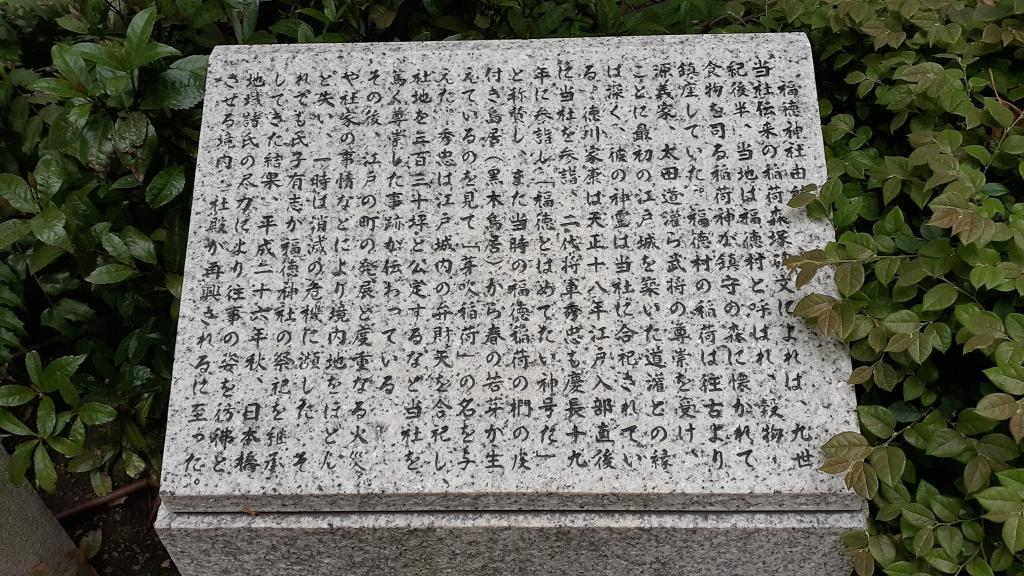 福徳神社由
当社伝来の稲荷森塚碑文によれば、九世
紀後半、当地は福徳村と呼ばれ、穀物・
食物を司る稲荷神が鎮守の森に懐かれて
鎮座していた。福徳村の稲荷は往古より
源義家、太田道灌ら武将の尊崇を受け、
ことに最初の江戸城を築いた道灌との縁
は深く、彼の神霊は当社に合祀されてい
る。徳川家康は天正十八年江戸入部直後
に当社を参詣、二代将軍秀忠も慶長十九
年に参詣し「福徳とはめでたい神号だ」
と称賛し、また当時の福徳稲荷の椚の皮
付き鳥居（黒木鳥居）から春の若芽が生
えているのを見て「芽吹稲荷」の名を与
えた。秀忠は江戸城内の弁財天を合祀し、
社地を三百三十坪と公定するなど当社を
篤く尊崇した事跡が伝わっている。
その後、江戸の町の発展と度重なる火災
や社家の事情などにより境内地をほとん
ど失い、一時は消滅の危機に瀕した。そ
れでも氏子有志が福徳神社の祭祀を継承
してきた結果、平成二十六年秋、日本橋
地域諸氏の尽力により往事の姿を彷彿と
させる境内、社殿が再興されるに至った。